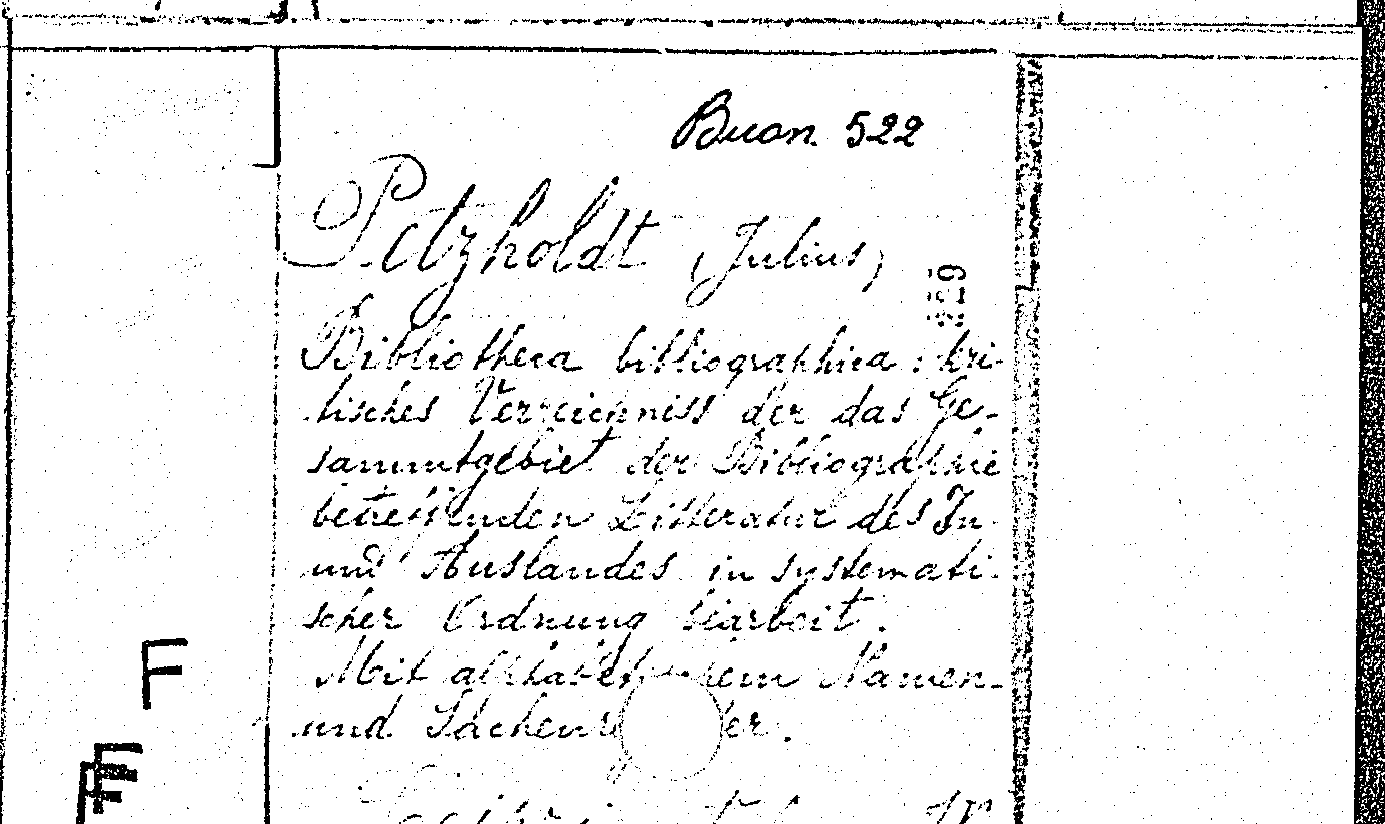 Buon. 522
Petzholdt (Julius)
Bibliotheca bibliographica : kri
tisches Verzeichniss der das Ge-
sammtgebiet der Bibliographie
betreffenden Litteratur des In-
und Auslandes in systemati-
scher Ordnung bearbeit.
Mit alphabetischem Namen-
und Sachenr er.
F
F
F